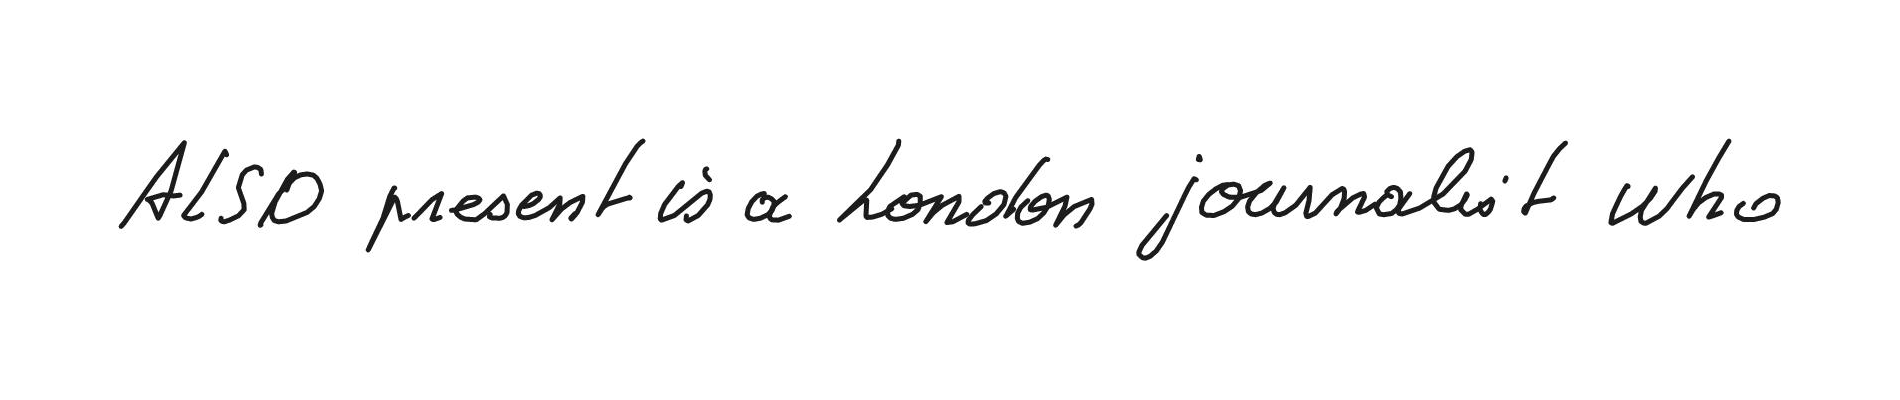 ALSO present is a London journalist who